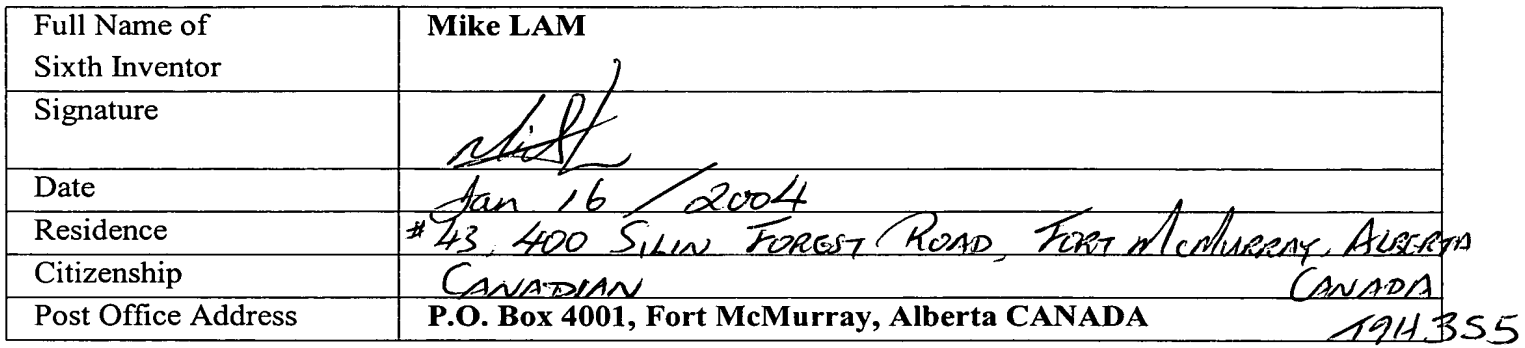 Full Name of
Sixth Inventor
Mike LAM
Signature
Date
Jan 16 / 2004
Residence
#43, 400 SILIN FOREST ROAD, FORT MCMURRAY, ALBERTA
CANADA
Citizenship
CANADIAN
Post Office Address
P.O. Box 4001, Fort McMurray, Alberta CANADA
T9H 3S5